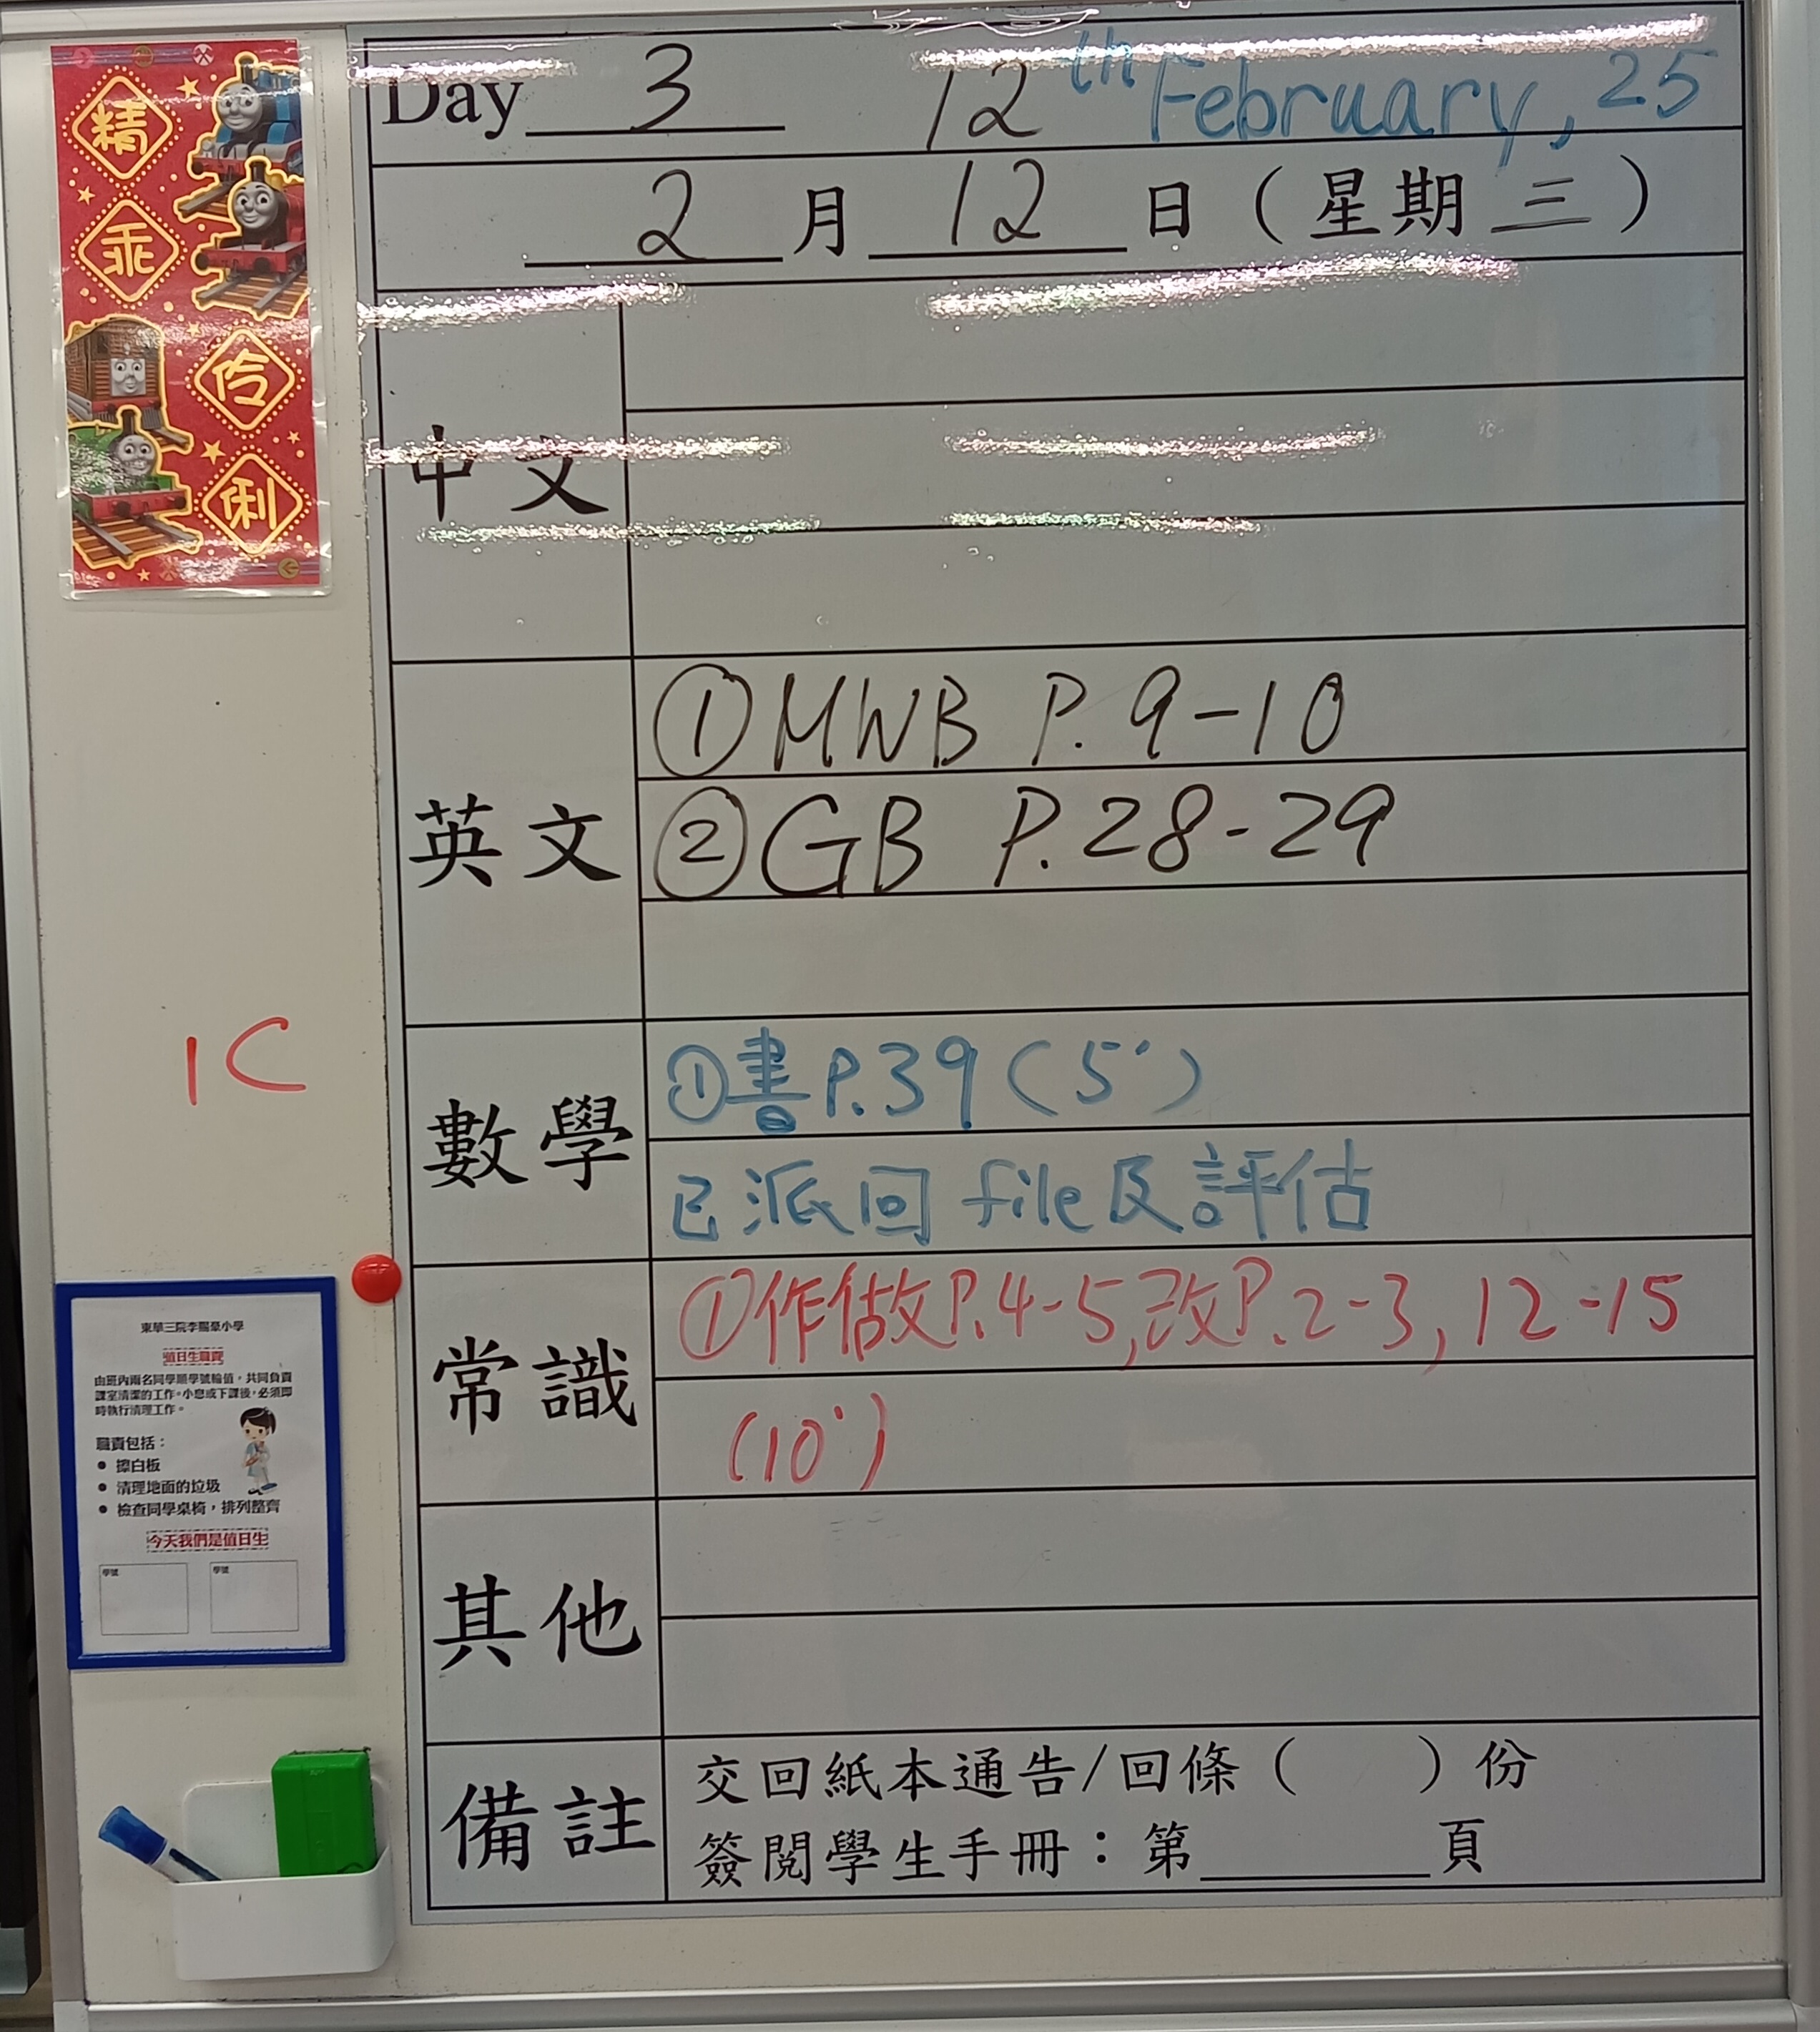 精
乖
伶
俐
Day 3 12th February, 25
2 月 12 日 ( 星期 三 )
中文
英文
①MWB P.9-10
②GB P.28-29
數學
①書P.39(5')
已派回 file及評估
常識
①作做P.4-5,改P.2-3, 12-15
(10')
其他
備註
交回紙本通告/回條( )份
簽閱學生手冊：第____頁
1C
東華三院李賜豪小學
值日生職責
由班內兩名同學順學號輪值，共同負責
課室清潔的工作。小息或下課後，必須即
時執行清理工作。
職責包括：
• 擦白板
• 清理地面的垃圾
• 檢查同學桌椅，排列整齊
今天我們是值日生
學號 學號